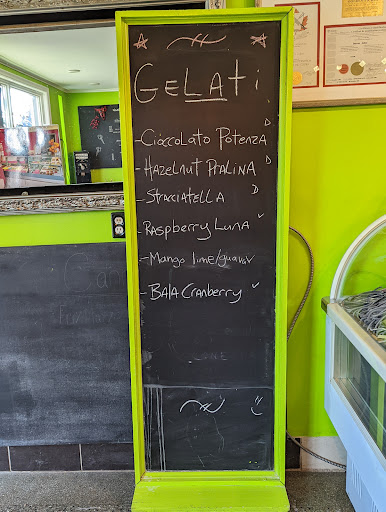 GeLAti
-Cioccolato Potenza D
-Hazelnut Pralina D
-Stracciatella D
-Raspberry Luna ✓
-Mango lime/guava ✓
-Baja Cranberry ✓